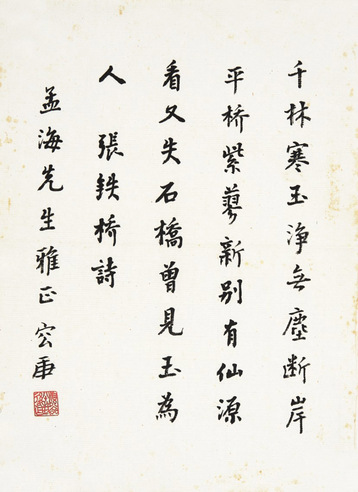 千林寒玉净無塵断岸
平桥紫蓼新别有仙源
看又失石橋曾見玉為
人 張鉄桥詩
孟海先生雅正 容庚